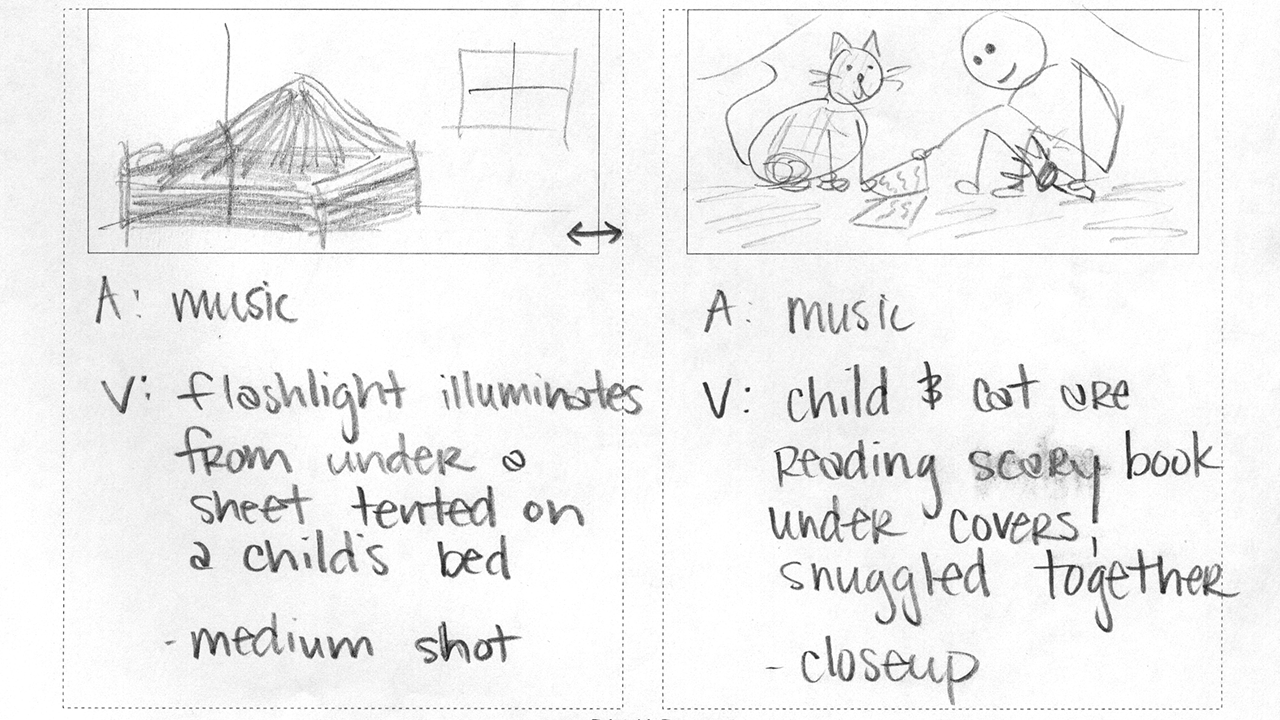 A: music
V: flashlight illuminates
from under a
sheet tented on
a child's bed
- medium shot
A: music
V: child & cat are
Reading scary book
under covers,
snuggled together
- closeup